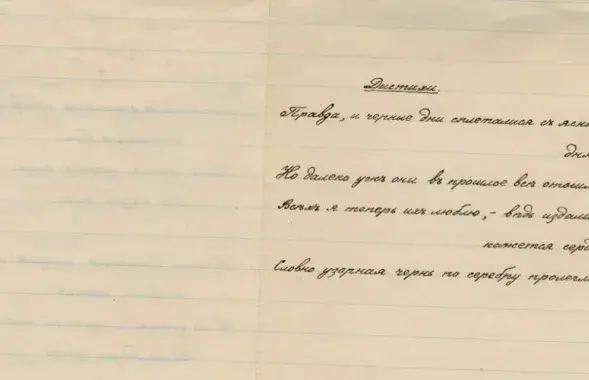 Дистихи.
Правда, и черные дни сплеталися съ ясн
дня
Но далеко ужъ они въ прошлое всѣ отошл
Всѣхъ я теперь ихъ люблю, – вѣдь издали
кажется серд
Словно узорная чернь по серебру пролегл